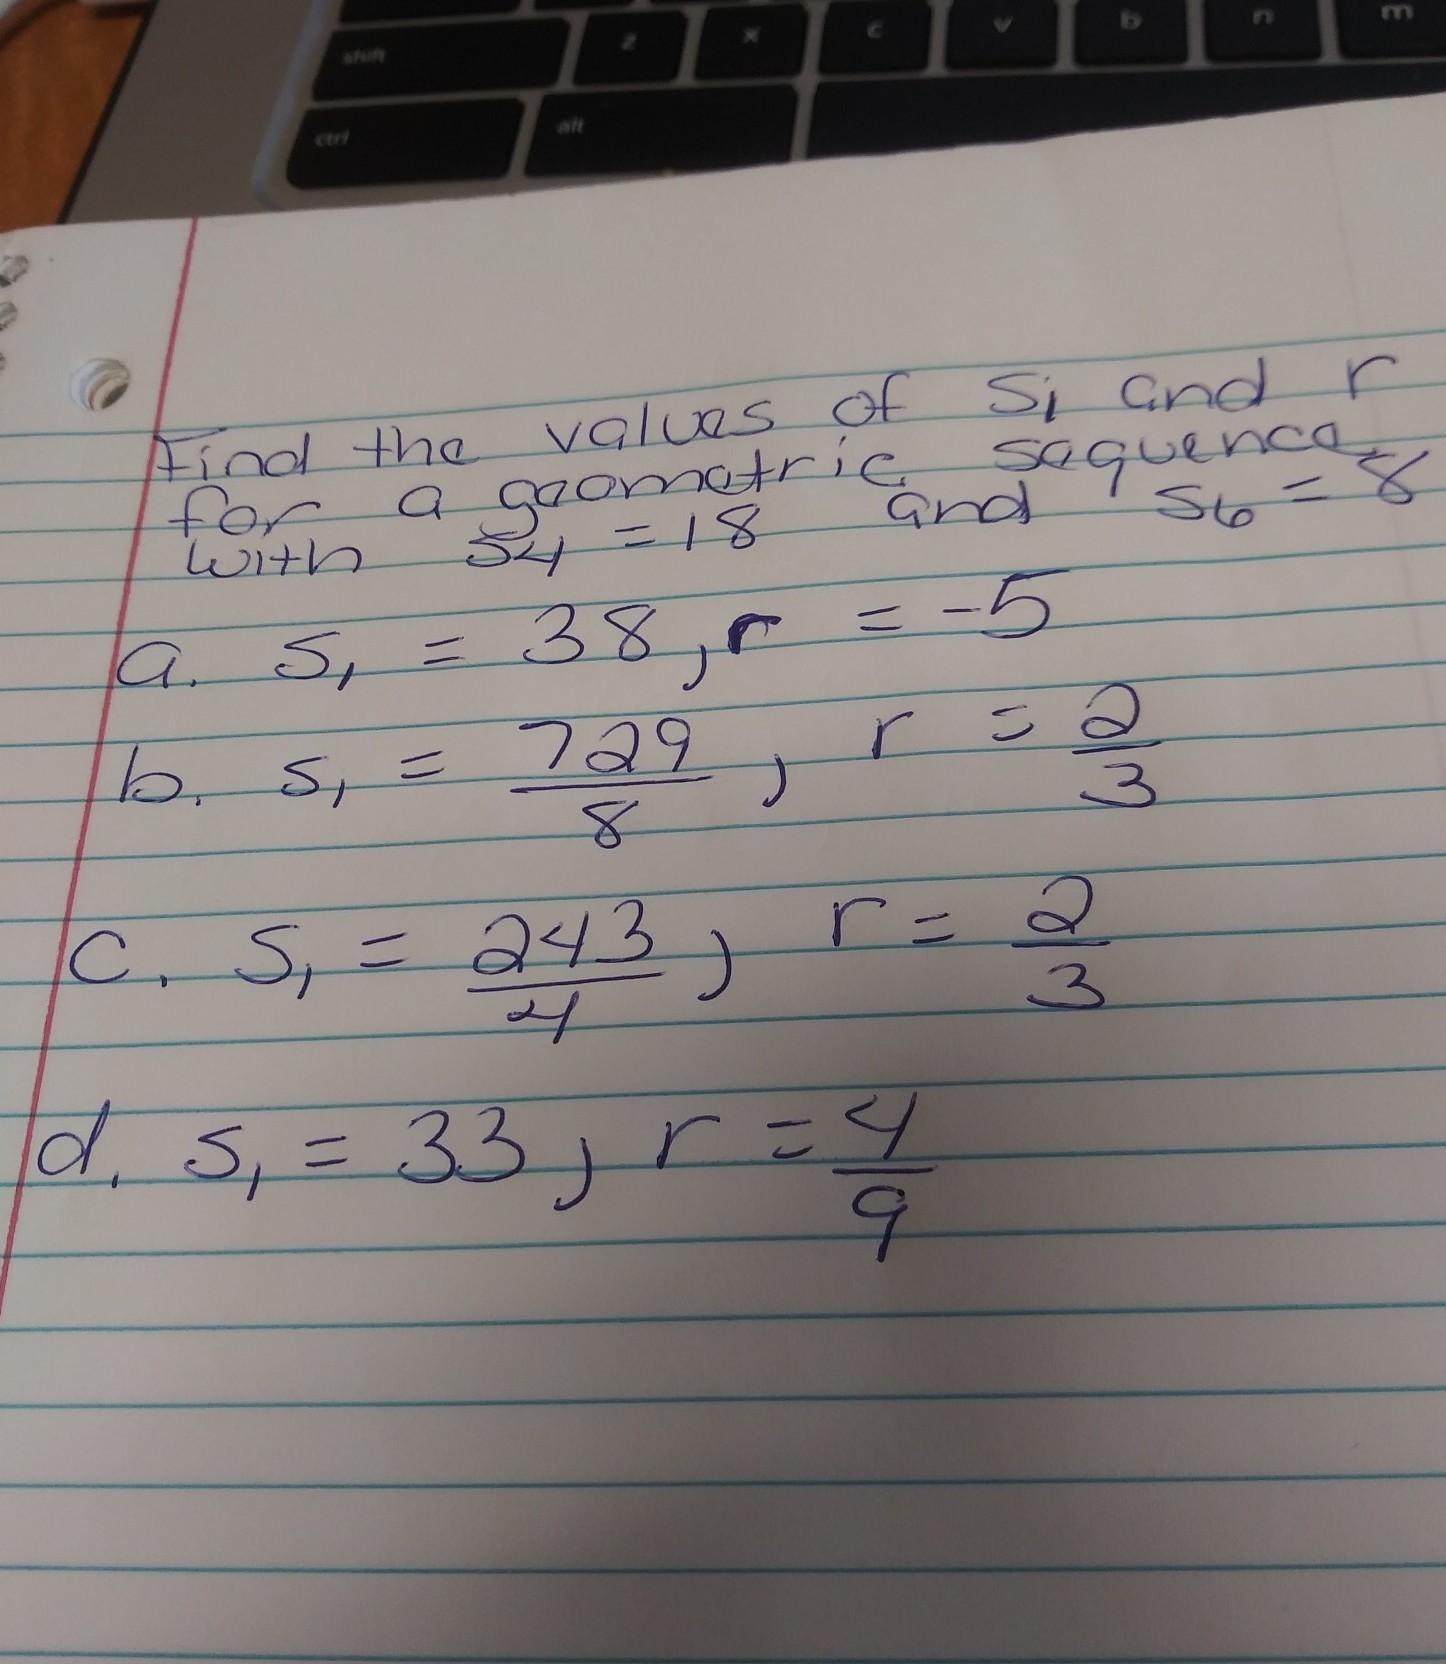 shift z x c v b n m
ctrl alt
Find the values of S₁ and r
for a geometric sequence
with S₄ = 18 and S₆ = 8
a. S₁ = 38, r = -5
b. S₁ = 729/8, r = 2/3
c. S₁ = 243/4, r = 2/3
d. S₁ = 33, r = 4/9